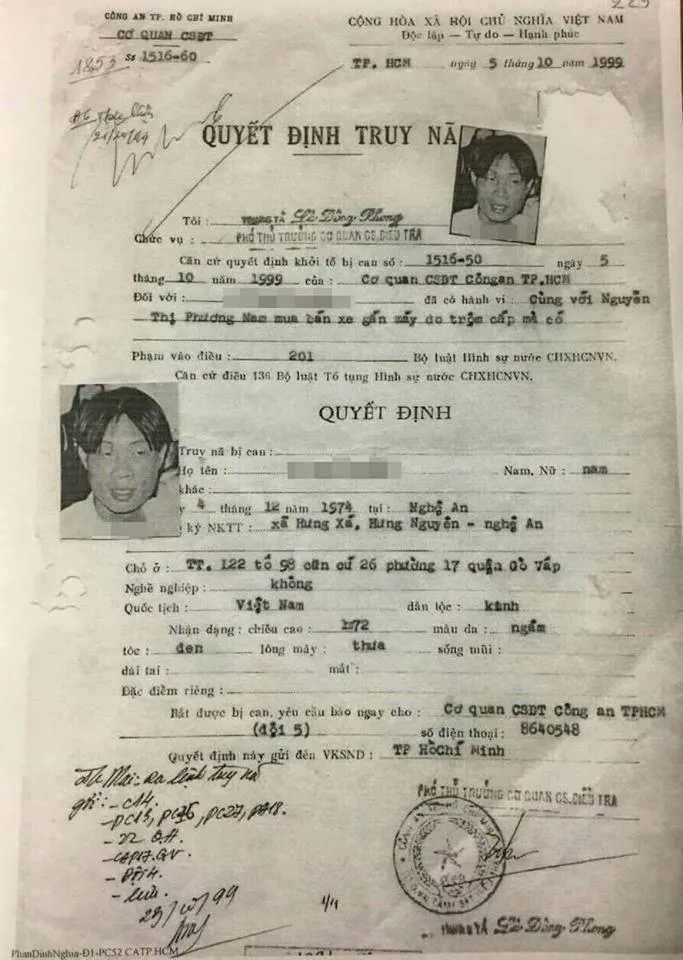 CÔNG AN TP. HỒ CHÍ MINH
CƠ QUAN CSĐT
Số 1516-60
1853
CỘNG HÒA XÃ HỘI CHỦ NGHĨA VIỆT NAM
Độc lập — Tự do — Hạnh phúc
TP. HCM ngày 5 tháng 10 năm 1999
QUYẾT ĐỊNH TRUY NÃ
Tôi : TRUNG TÁ Lê Đông Phong
Chức vụ : PHÓ THỦ TRƯỞNG CƠ QUAN CS.ĐIỀU TRA
Căn cứ quyết định khởi tố bị can số : 1516-50 ngày 5
tháng 10 năm 1999 của : Cơ quan CSĐT Côngan TP.HCM
Đối với : đã có hành vi : Cùng với Nguyễn
Thị Phương Nam mua bán xe gắn máy do trộm cấp mà có
Phạm vào điều : 201 Bộ luật Hình sự nước CHXHCNVN.
Căn cứ điều 136 Bộ luật Tố tụng Hình sự nước CHXHCNVN.
QUYẾT ĐỊNH
Truy nã bị can :
Họ tên : Nam, Nữ : nam
khác :
y 4 tháng 12 năm 1974 tại : Nghệ An
ký NKTT : xã Hưng Xá, Hưng Nguyên - nghệ An
Chỗ ở : TT. 122 tổ 98 căn cứ 26 phường 17 quận Gò Vấp
Nghề nghiệp : không
Quốc tịch : Việt Nam dân tộc : kinh
Nhận dạng : chiều cao : 1m72 màu da : ngăm
tóc : đen lông mày : thưa sống mũi :
dái tai : mắt :
Đặc điểm riêng :
Bắt được bị can, yêu cầu báo ngay cho : Cơ quan CSĐT Công an TPHCM
(đội 5) số điện thoại : 8640548
Quyết định này gửi đến VKSND : TP HồChí Minh
PHÓ THỦ TRƯỞNG CƠ QUAN CS.ĐIỀU TRA
ra lệnh truy nã
gửi : - C14
- PC13, PC16, PC27, PA18.
- 22 Q.H.
- CAP17.GV
- lưu.
29/10/99
TRUNG TÁ Lê Đông Phong
PhanDinhNghia-Đ1-PC52 CATP.HCM